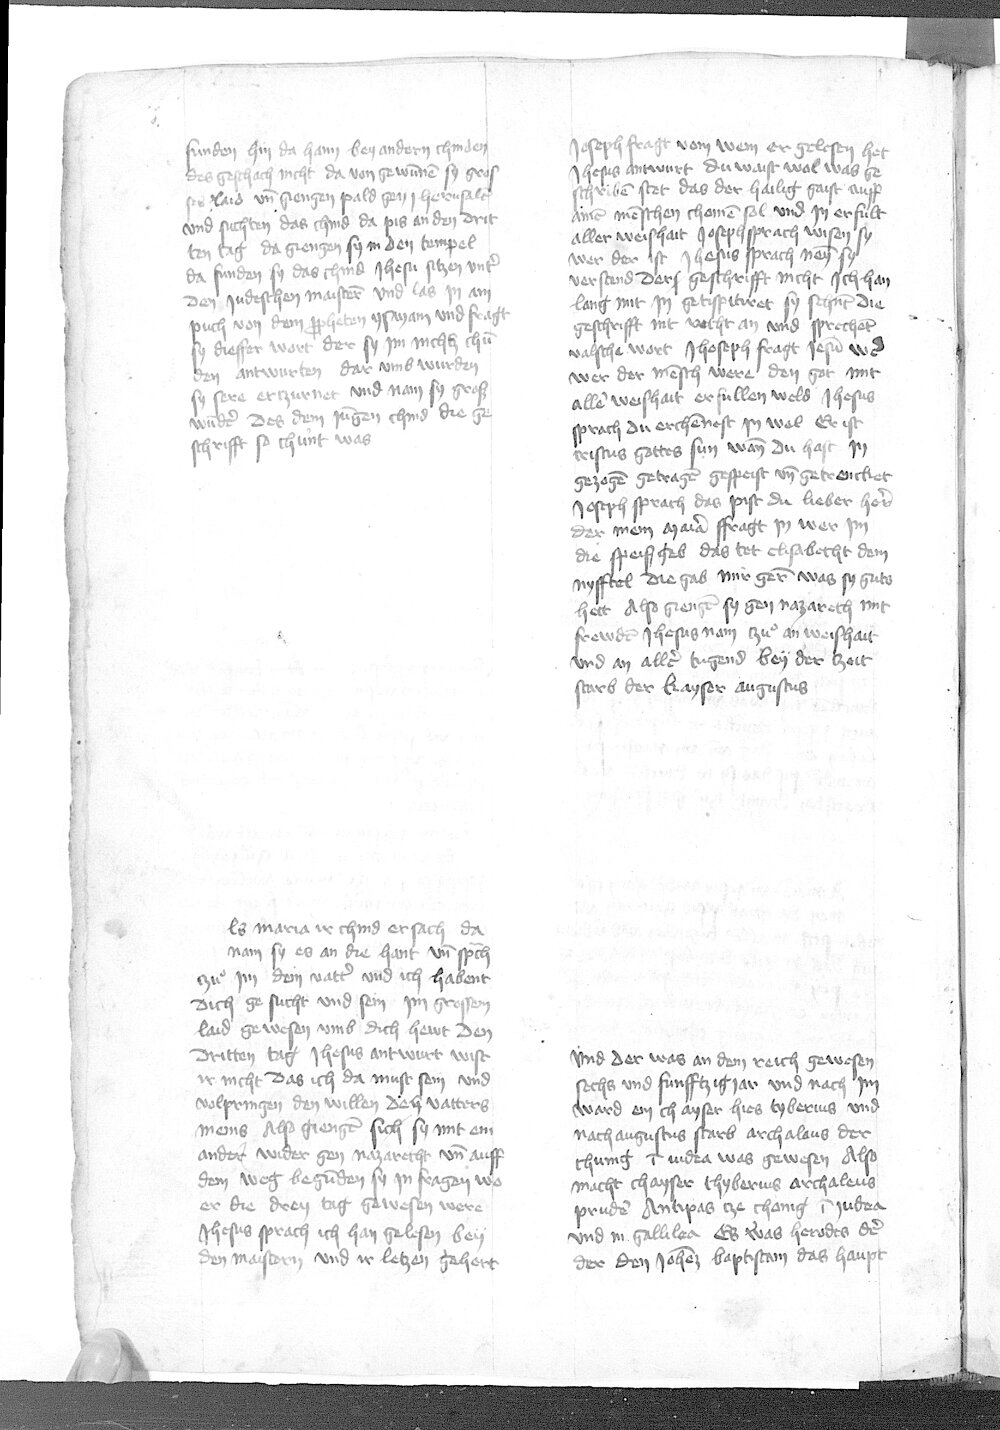 funden hin da haim bey andern chinden
des geschach nicht da von gewūnē sy gros
laid vn̄ giengen pald gen Jherusalē
vnd suchten das chind da pis an den drit
ten tag da giengen sy in den tempel
da funden sy das chind Jhesu siczen vnt̄
den Judeschen maistern̄ vnd las in am
puch von dem ppheten ysayam vnd fragt
sy dieffer wort der sy im nicht chūn
den antwurten dar vmb wurden
sy sere erczurnet vnd nam sy gross
wūder Des dem Jūgen chind die ge
schrifft so chunt was
ls maria ir chind ersach da
nam sy es an die hant vn̄ sp̄ch
czu im dein vatt̄ vnd ich habent
dich gesucht vnd sein im grossem
laid gewesen vmb dich hewt den
dritten tag Jhesus antwurt wist
ir nicht das ich da must sein vnd
volpringen den willen des vatters
meins Also giengē sich sy mit ein
ander wider gen nazarecht vn̄ auff
dem weg begūden sy in fragen wo
er die drey tag gewesen were
Jhesus sprach ich han gelesen bey
den maistern vnd ir leczen gehert
Joseph fragt vom wem er gelesen het
Jhesus antwurt du waist wol was ge
schribē stet das der hailig gaist auff
ainē mēschen chomē sol vnd in erfult
aller weishait Joseph sprach wisen sy
wer der ist Jhesus sprach neyn sy
verstend der geschrifft nicht Ich han
lang mit in getispitiret sy sehnt die
geschrifft nit recht an vnd sprechet
valsche wort Jhoseph fragt Jesū
wer der mēsch were den got mit
aller weishait erfullen weld Jhesus
sprach du erchēnest in wol Er ist
cristus gottes sun wan̄ du hast in
gezogē getragē gespeist vn̄ getrencket
Joseph sprach das pist du lieber her̄
der mein maria ffragt in wer im
die speis geb das tet elisabecht dem
nyfftel die gab mir gerē was sy guts
hett Also giengē sy gen nazareth mit
frewdē Jhesus nam czu an weishait
vnd an aller tugend bey der czeit
starb der kayser augustus
Vnd der was an dem reich gewesen
sechs vnd funfftzig jar vnd nach im
ward ein chayser hies tyberius vnd
nach augustus starb archalaus der
chunig ī iudea was gewesen Also
macht chayser thyberius archaleus
pruder Antipas cze chonig ī Judea
vnd in gallilea Es was herodes
der den Johēz baptistam das haupt